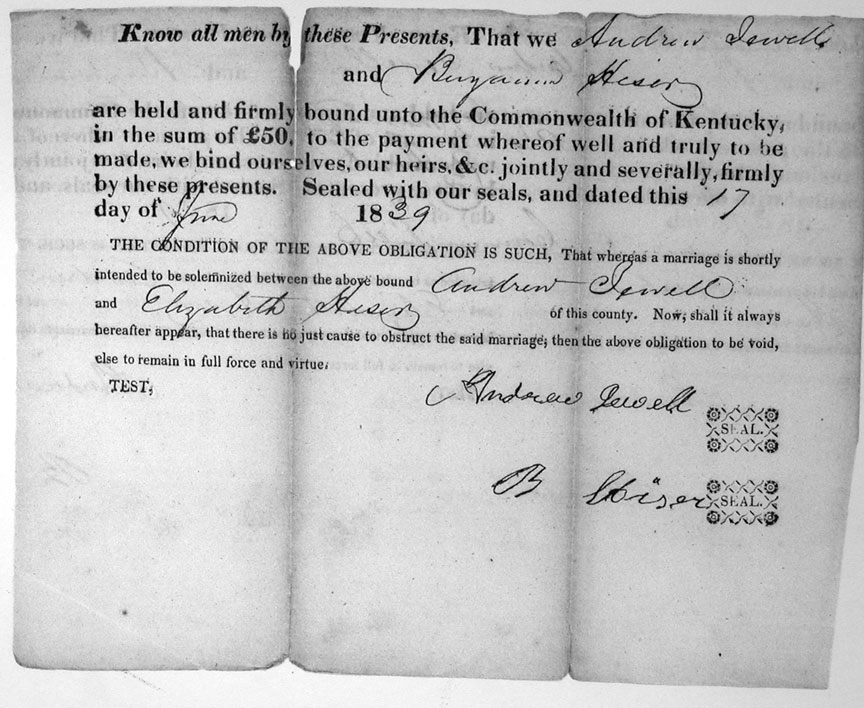 Know all men by these Presents, That we Andrew Jewell
and Benjamin Hiser
are held and firmly bound unto the Commonwealth of Kentucky,
in the sum of £50, to the payment whereof well and truly to be
made, we bind ourselves, our heirs, &c. jointly and severally, firmly
by these presents. Sealed with our seals, and dated this 17
day of June 1839
THE CONDITION OF THE ABOVE OBLIGATION IS SUCH, That whereas a marriage is shortly
intended to be solemnized between the above bound Andrew Jewell
and Elizabeth Hiser of this county. Now, shall it always
hereafter appear, that there is no just cause to obstruct the said marriage, then the above obligation to be void,
else to remain in full force and virtue.
TEST,
Andrew Jewell
SEAL.
B Hiser
SEAL.